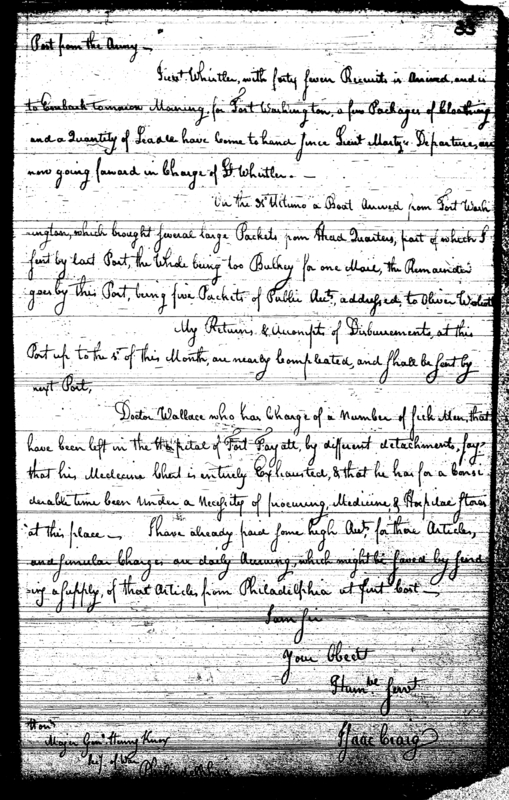 33
Post from the Army —
Lieut Whistler, with forty seven Recruits is Arrived, and is
to Embark tomorrow Morning, for Fort Washington, a few Packages of Cloathing
and a Quantity of Leade have come to hand since Lieut Marty's Departure, are
now going forward in Charge of Lt Whistler. —
On the 31st Ultimo a Boat Arrived from Fort Wash
-ington, which brought several large Packets from Head Quarters, part of which I
sent by last Post, the Whole being too Bulkey for one Mail, the Remainder
goes by this Post, being five Packets of Public Acts, addressed, to Oliver Wolcott
My Returns & Accompts of Disbursements, at this
Post up to the 1st of this Month, are nearly Compleated, and shall be sent by
next Post,
Doctor Wallace who has Charge of a Number of sick Men, that
have been left in the Hospital of Fort Fayatt, by different detachments, says
that his Medecine Chest is entirely Exhausted, & that he has for a Consi
derable time been Under a Necessity of procuring, Medicine, & Hospital Stores
at this place — I have already paid some high Acts for those Articles,
and similar Charges are daily Accruing, which might be saved by send
-ing a supply, of that Articles from Philadelphia at first Cost —
I am Sir
Your Obedt
Humble Servt
Isaac Craig
Honl
Major Genl Henry Knox
Secy of War
Philadelphia